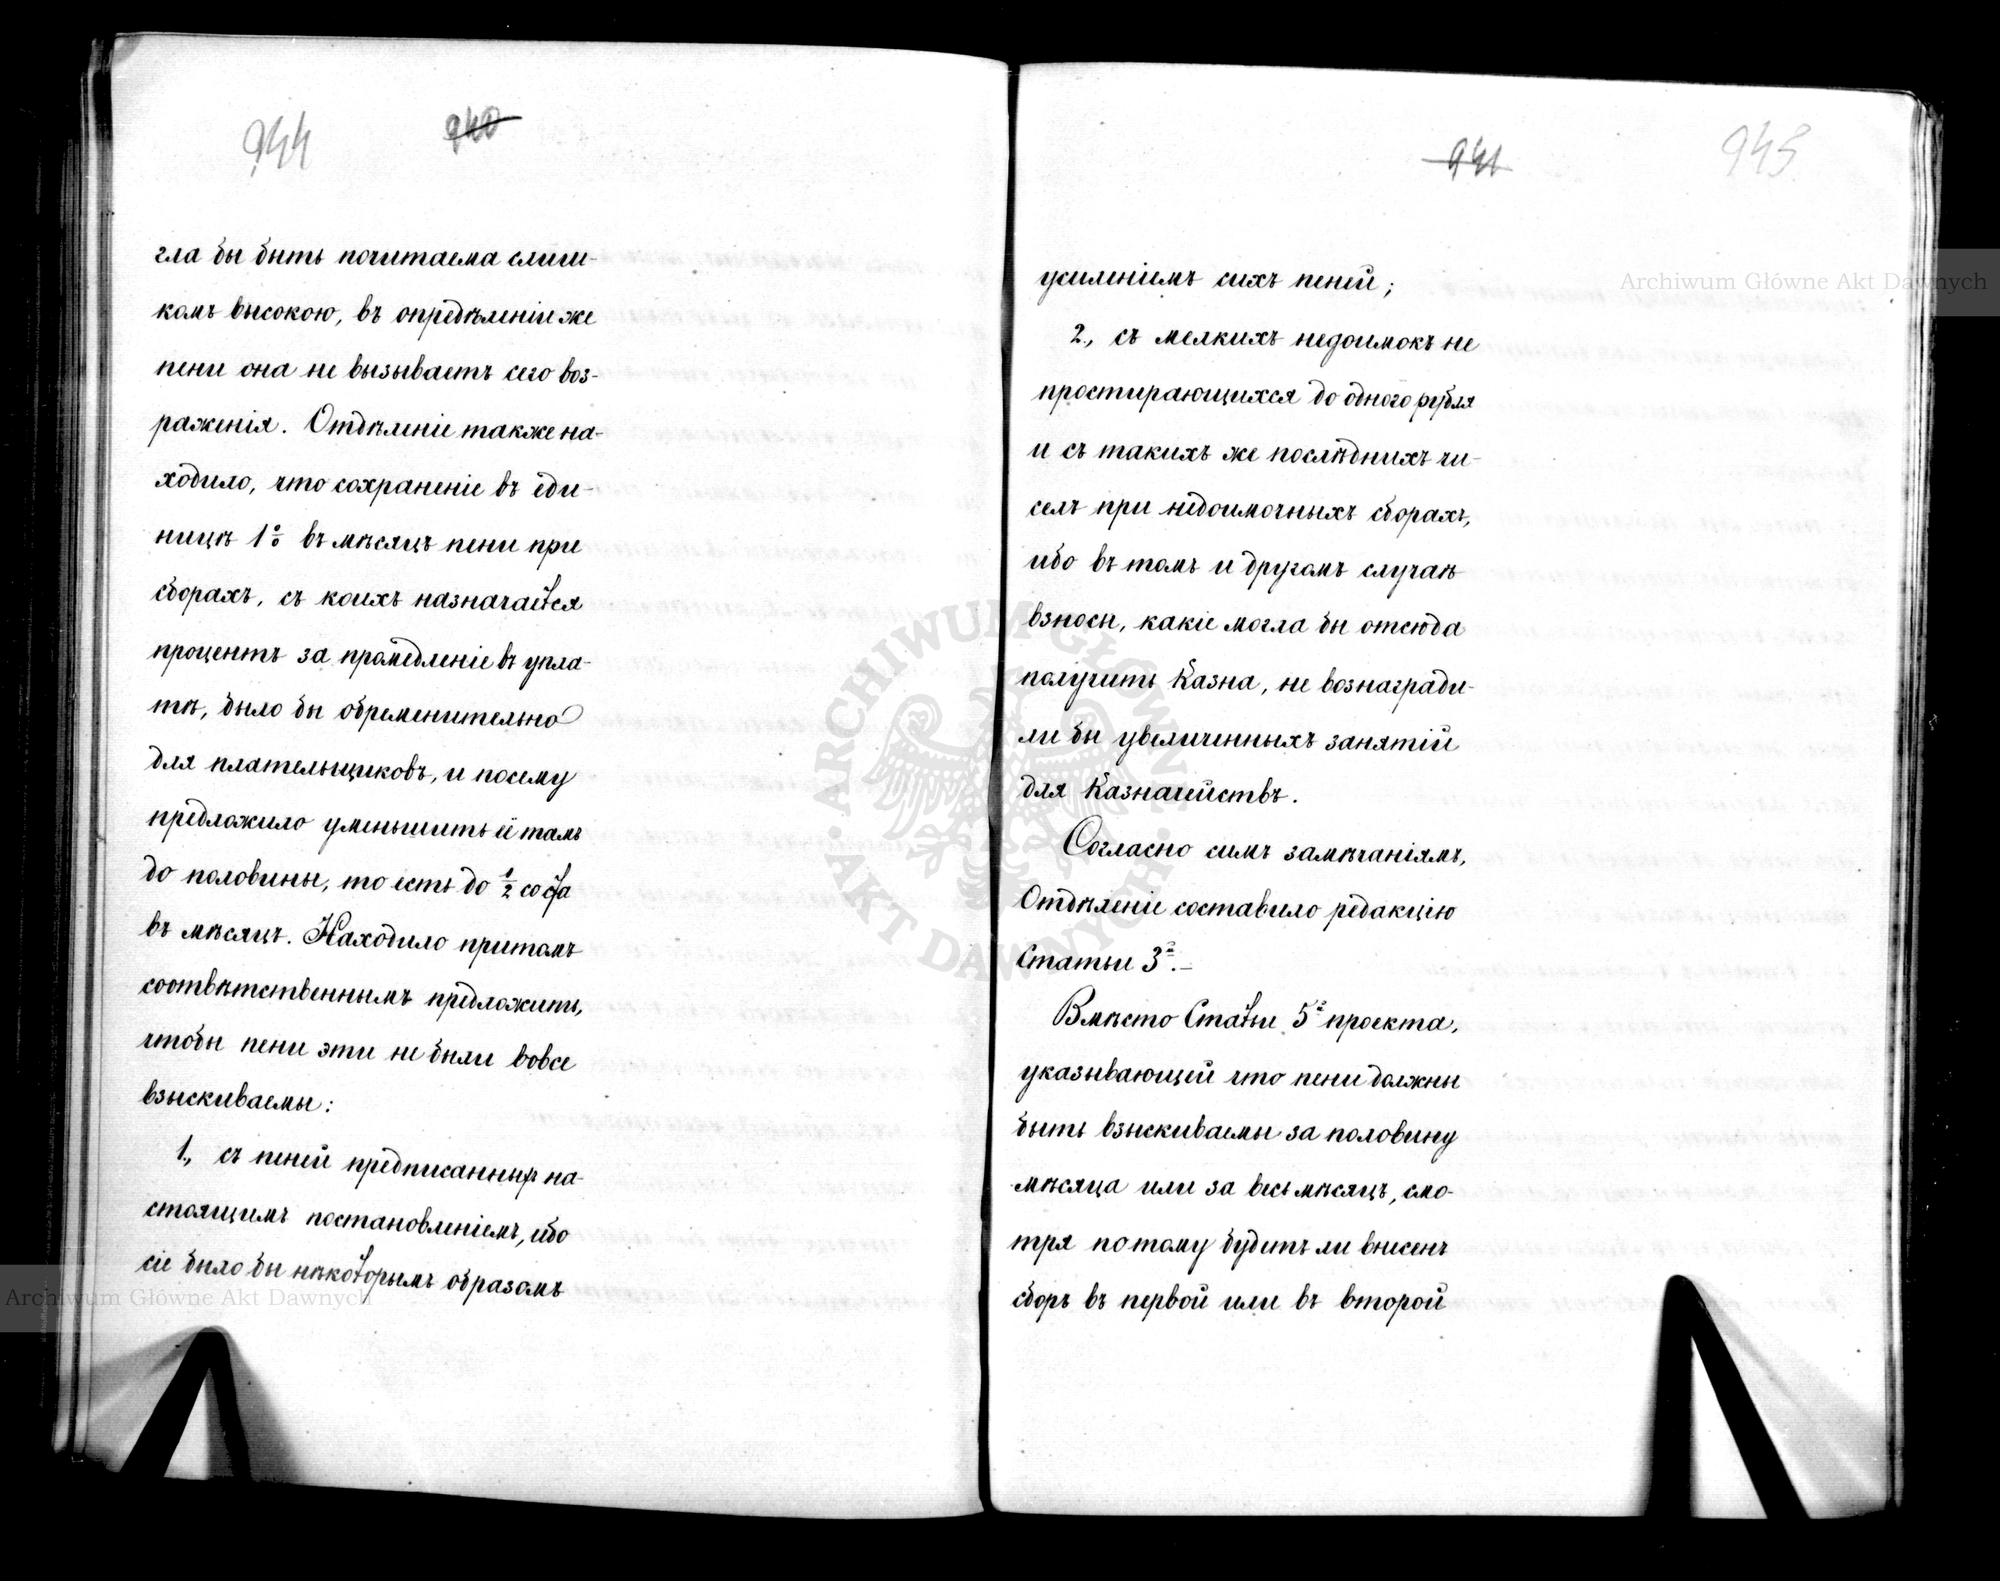 944
940
гла бы быть почитаема слиш-
комъ высокою, въ опредѣленіи же
пени она не вызываетъ сего воз-
раженія. Отдѣленіе также на-
ходило, что сохраненіе въ еди-
ницѣ 1% въ мѣсяцъ пени при
сборахъ, съ коихъ назначается
процентъ за промедленіе въ упла-
тѣ, было бы обременительно
для плательщиковъ, и посему
предложило уменьшить её тамъ
до половины, то есть до 1/2 со ста
въ мѣсяцъ. Находило притомъ
соотвѣтственнымъ предложить,
чтобы пени эти не были вовсе
взыскиваемы:
1., съ пеней предписанныхъ на-
стоящимъ постановленіемъ, ибо
сіе было бы нѣкоторымъ образомъ
941
945
усиленіемъ сихъ пеней;
2., съ мелкихъ недоимокъ не
простирающихся до одного рубля
и съ такихъ же послѣднихъ чи-
селъ при недоимочныхъ сборахъ,
ибо въ томъ и другомъ случаѣ
взносы, какіе могла бы отсюда
получить Казна, не вознагради-
ли бы увеличенныхъ занятій
для Казначействъ.
Согласно симъ замѣчаніямъ,
Отдѣленіе составило редакцію
Статьи 3й.—
Вмѣсто Статьи 5й проекта,
указывающей что пени должны
быть взыскиваемы за половину
мѣсяца или за весь мѣсяцъ, смо-
тря по тому будетъ ли внесенъ
сборъ въ первой или въ второй
Archiwum Główne Akt Dawnych
Archiwum Główne Akt Dawnych
ARCHIWUM GŁÓWNE AKT DAWNYCH